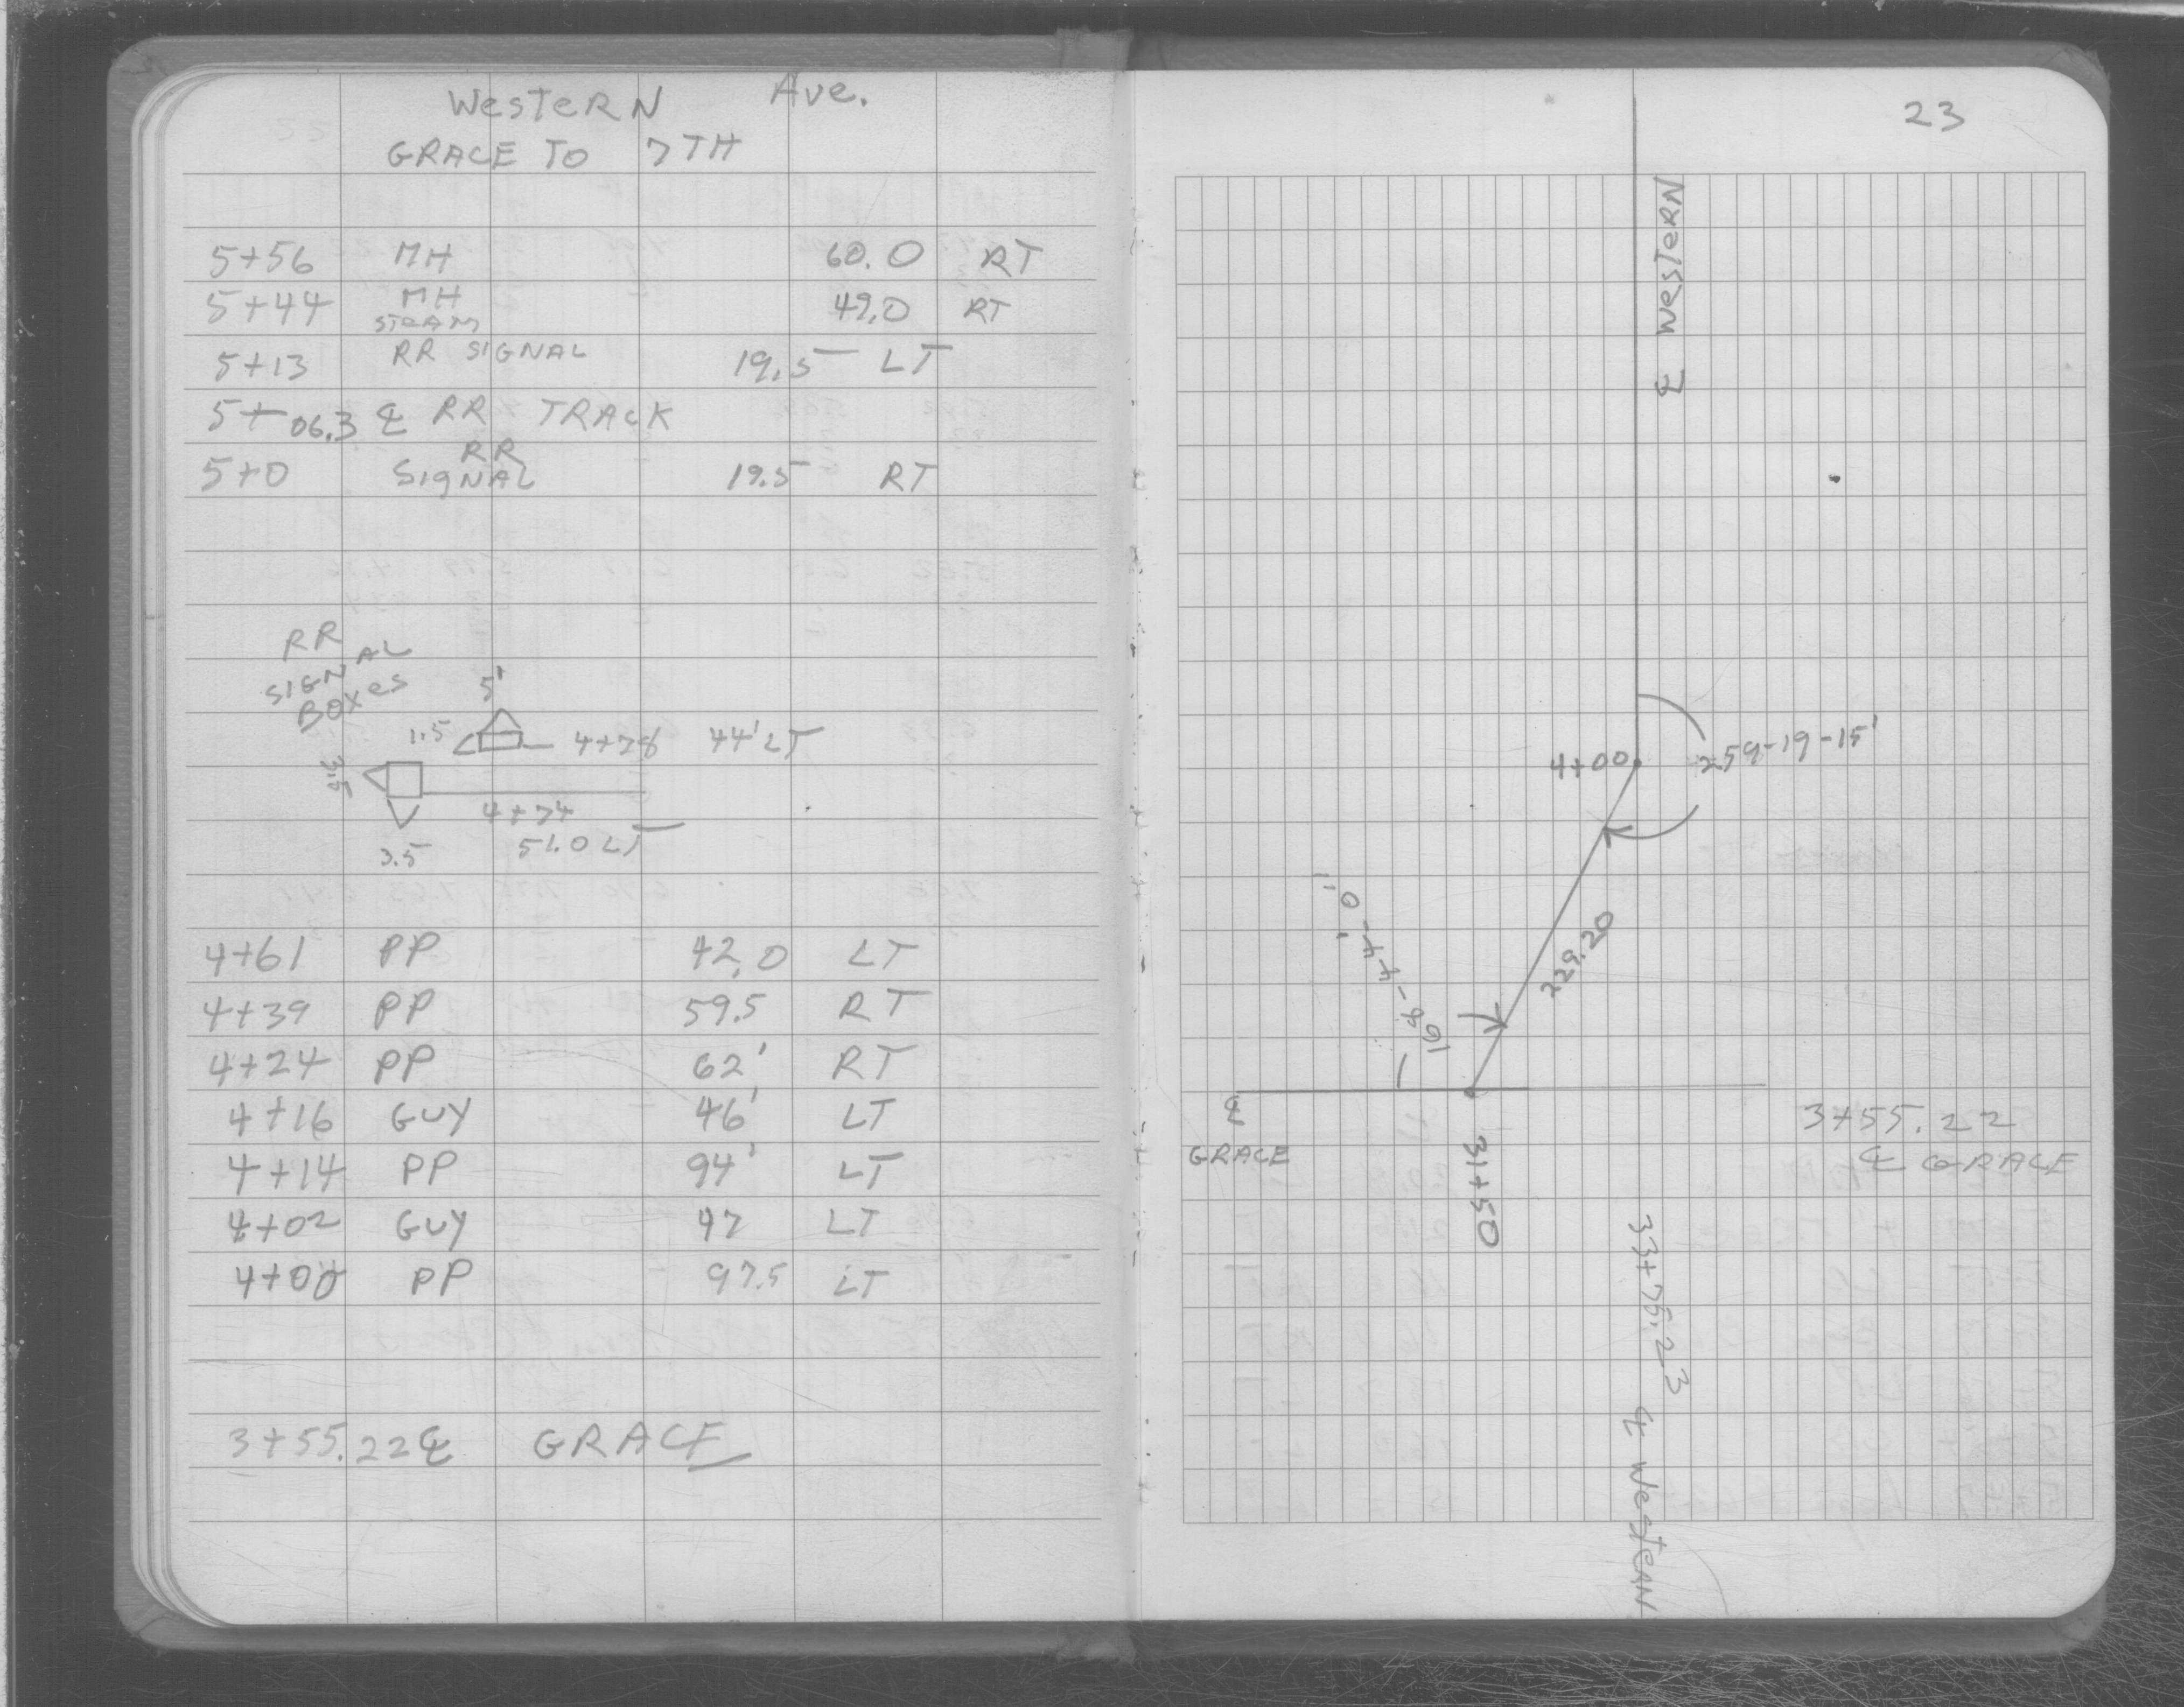 Western Ave.
GRACE TO 7TH
5+56 MH 60.0 RT
5+44 MH STEAM 49.0 RT
5+13 RR SIGNAL 19.5 LT
5+06.3 ℄ RR TRACK
5+0 RR SIGNAL 19.5 RT
RR
SIGNAL
BOXES
5'
1.5 4+78 44' LT
3.5
4+74
3.5 51.0 LT
4+61 PP 42.0 LT
4+39 PP 59.5 RT
4+24 PP 62' RT
4+16 GUY 46' LT
4+14 PP 94' LT
4+02 GUY 47 LT
4+00 PP 97.5 LT
3+55.22 ℄ GRACE
23
℄ Western
4+00
259-19-15'
229.20
℄
GRACE
31+50
3+55.22
℄ GRACE
33+75.23 ℄ Western